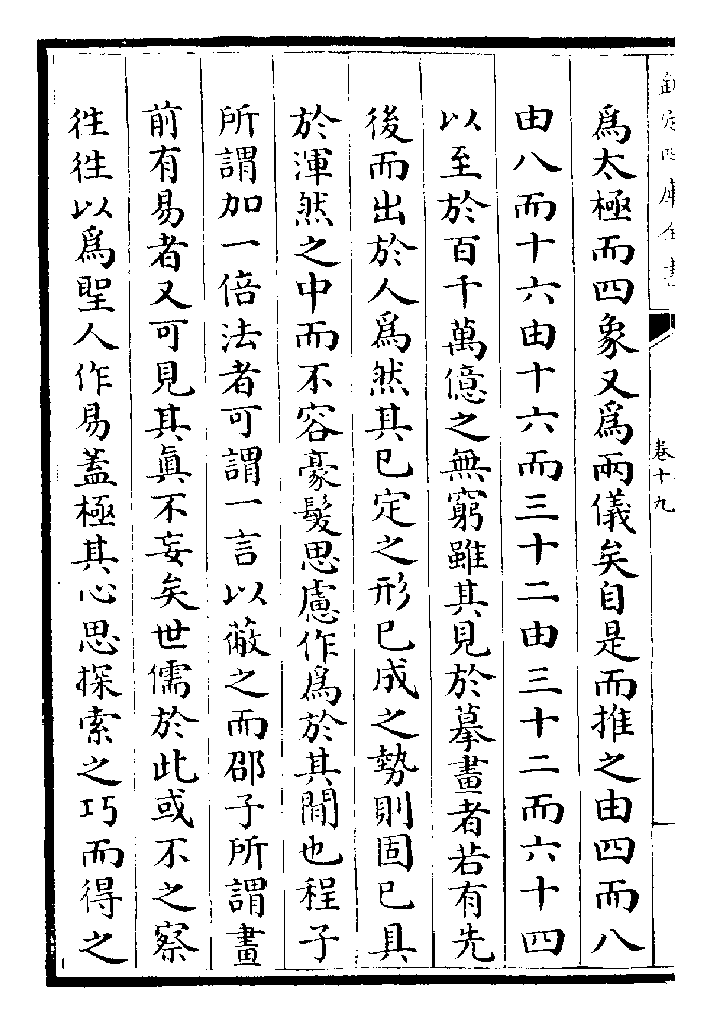 欽定四庫全書
卷十九
爲太極而四象又爲兩儀矣自是而推之由四而八
由八而十六由十六而三十二由三十二而六十四
以至於百千萬億之無窮雖其見於摹畫者若有先
後而出於人爲然其已定之形已成之勢則固已具
於渾然之中而不容豪髮思慮作爲於其間也程子
所謂加一倍法者可謂一言以蔽之而邵子所謂畫
前有易者又可見其眞不妄矣世儒於此或不之察
徃徃以爲聖人作易蓋極其心思探索之巧而得之